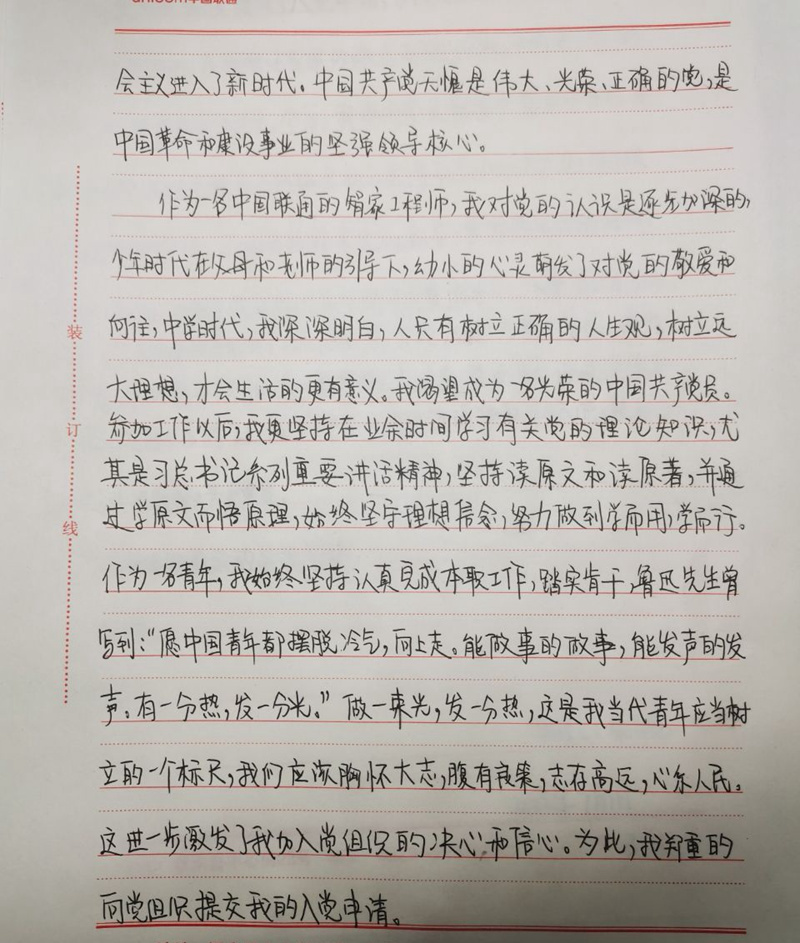 unicom中国联通
会主义进入了新时代。中国共产党无愧是伟大、光荣、正确的党,是
中国革命和建设事业的坚强领导核心。
作为一名中国联通的智家工程师,我对党的认识是逐步加深的,
少年时代在父母和老师的引导下,幼小的心灵萌发了对党的敬爱和
向往,中学时代,我深深明白,人只有树立正确的人生观,树立远
大理想,才会生活的更有意义。我渴望成为一名光荣的中国共产党员。
参加工作以后,我更坚持在业余时间学习有关党的理论知识,尤
其是习总书记系列重要讲话精神,坚持读原文和读原著,并通
过学原文而悟原理,始终坚守理想信念,努力做到学而用,学而行。
作为一名青年,我始终坚持认真完成本职工作,踏实肯干,鲁迅先生曾
写到:“愿中国青年都摆脱冷气,向上走。能做事的做事,能发声的发
声。有一分热,发一分光。”做一束光,发一分热,这是我当代青年应当树
立的一个标尺,我们应浓胸怀大志,腹有良策,志存高远,心系人民。
这进一步激发了我加入党组织的决心和信心。为此,我郑重的
向党组织提交我的入党申请。
装
订
线